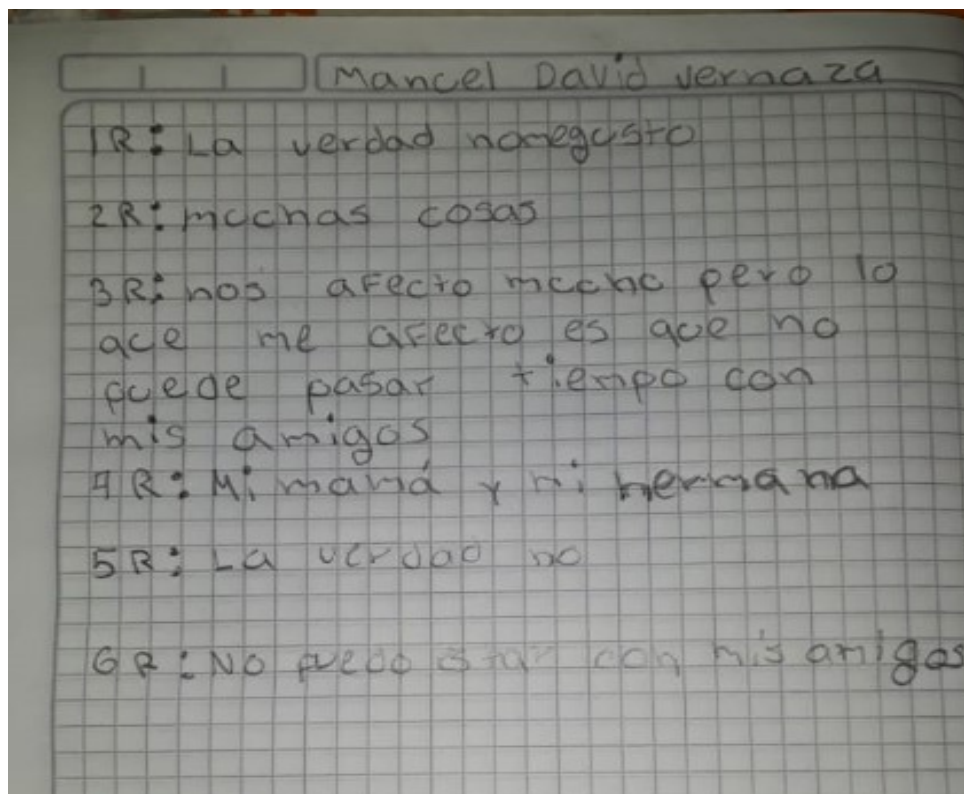 Manuel David vernaza
1R: La verdad nomegusto
2R: muchas cosas
3R: nos afecto mucho pero lo
que me afecto es que no
puede pasar tiempo con
mis amigos
4R: Mi mamá y mi hermana
5R: La verdad no
6R: No puedo estar con mis amigos